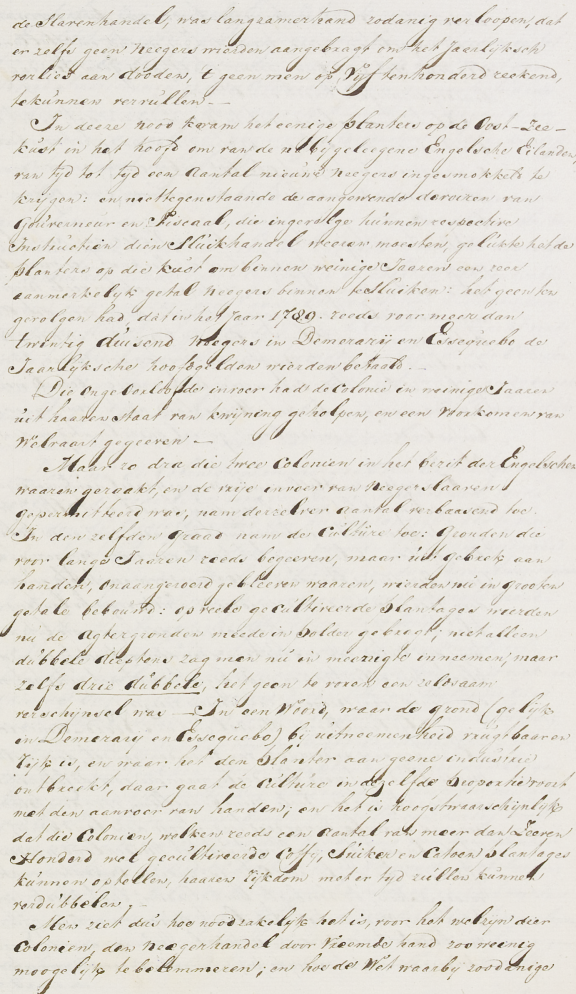 de Slavenhandel, was langzamerhand zodanig verloopen, dat
er zelfs geen neegers wierden aangebragt om het Jaarlijksch
verlies aan dooden, 't geen men op Vijftienhonderd reekend,
te kunnen vervullen. —
In deeze nood kwam het eenige planters op de Oost-Zee-
kust in het hoofd om van de nabij geleegene Engelsche Eilanden,
van tyd tot tyd een aantal nieuwe Neegers ingesmokkelt te
krijgen: en niettegenstaande de aangewende devoiren van
Gouverneur en Fiscaal, die ingevolge hunnen respective
Instructien dien Sluikhandel weeren moesten, gelukte het de
planters op die kust om binnen weinige Jaaren een zeer
aanmerkelyk getal Neegers binnen te Sluiken: het geen ten
gevolgen had, dat in het Jaar 1789. reeds voor meer dan
twintig duisend Neegers in Demerarij en Essequebo de
Jaarlijksche hoofdgelden wierden betaald. —
Die ongeoorloofde invoer had de Colonie in weinige Jaaren
uit haaren Staat van kwijning geholpen, en een voorkomen van
Welvaart gegeeven —
Maar zo dra die twee Colonien in het bezit der Engelschen
waaren geraakt, en de vrije invoer van Neegerslaaven
gepermitteerd was, nam derzelver aantal verbaasend toe.
In den zelfden graad nam de Culture toe: Gronden die
voor lange Jaaren reeds begeeven, maar uit gebrek aan
handen, onaangeroerd gebleeven waaren, wierden nu in grooten
getale bebouwd: op veele gecultiveerde plantages wierden
nu de agtergronden meede in polder gebragt; niet alleen
dubbele dieptens zag men nu in meenigte inneemen, maar
zelfs drie dubbele, het geen te voren een zeldsaam
verschijnsel was — In een Woord, waar de grond (gelijk
in Demerary en Essequebo) bij uitneemenheid vrugtbaar en
Rijk is, en waar het den planter aan geene industrie
ontbreekt, daar gaat de Culture in dezelfde proportie voort
met den aanvoer van handen; en het is hoogstwaarschijnlyk
dat die Colonien, welken reeds een aantal van meer dan Seeven
Honderd met gecultiveerde Coffy, Suiker en Catoen plantages
kunnen optellen, haaren Rijkdom met er tyd zullen kunnen
verdubbelen. —
Men ziet dus hoe noodzakelijk het is, voor het welzyn dier
Colonien, den Neegerhandel door vreemde hand zoo weinig
moogelijk te belemmeren; en hoe de Wet waarbij zoodanige